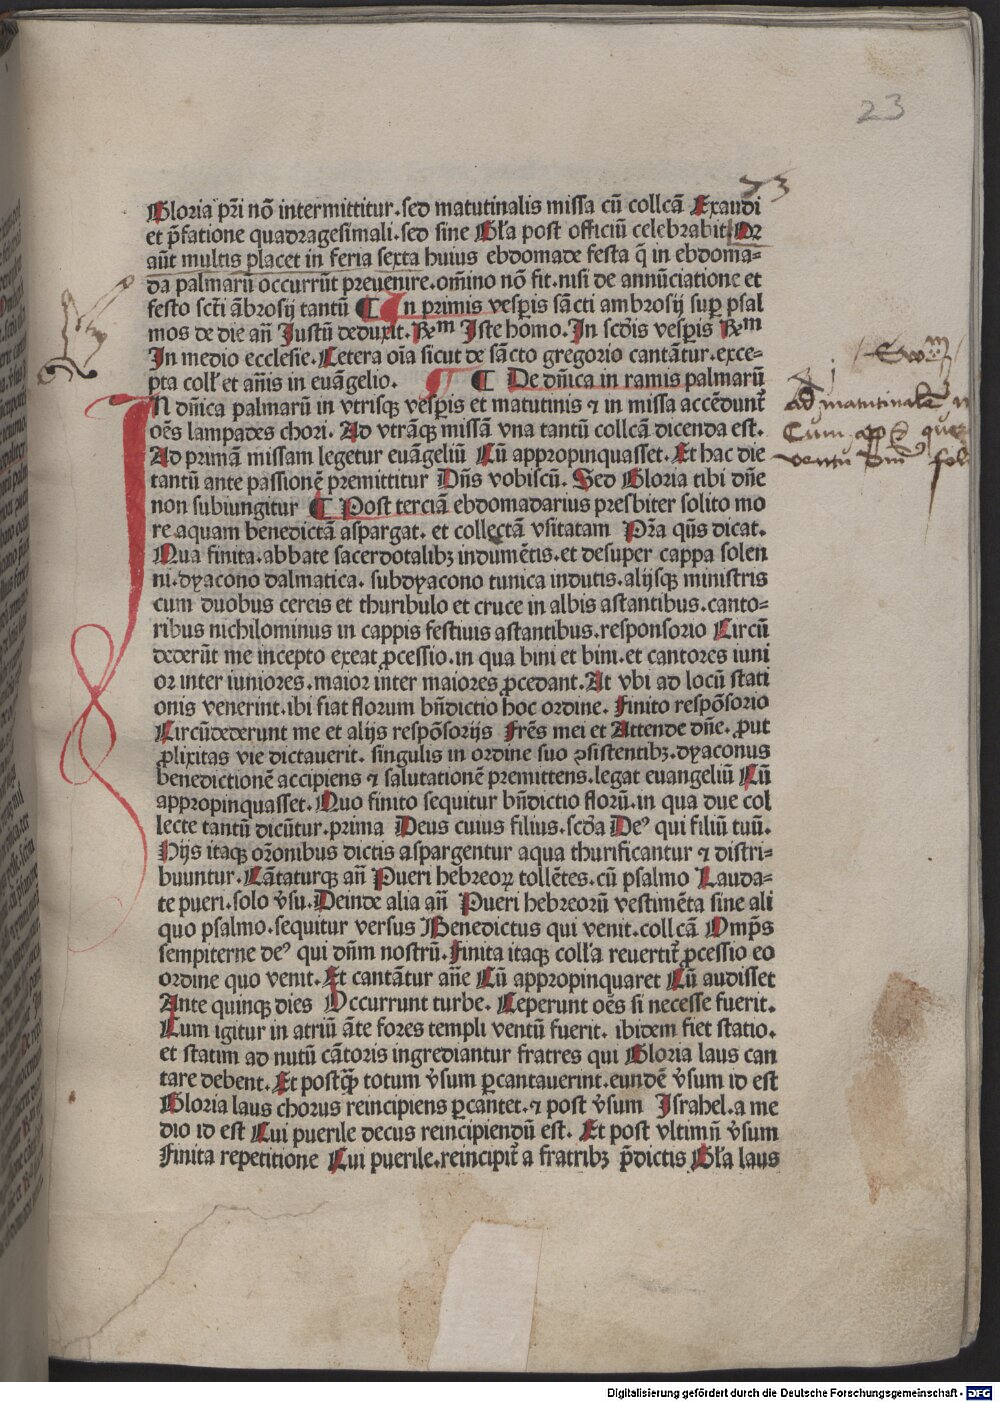 23
23
Gloria pr̄i nō intermittitur. sed matutinalis missa cū collcā Exaudi
et p̄fatione quadragesimali. sed sine Gl'a post officiū celebrabit̃ Or
aūt multis placet in feria sexta huius ebdomade festa q̄ in ebdoma⸗
da palmarū occurrūt preuenire. om̄ino nō fit. nisi de annūciatione et
festo sct̄i ābrosij tantū ¶ In primis vesp̄is sācti ambrosij sup̄ psal
mos de die an̄ Justū deduxit. R̄m Iste homo. In scd̄is vesp̄is R̄m
In medio ecclesie. Cetera oīa sicut de sācto gregorio cantātur. exce⸗
pta coll' et an̄is in euāgelio. ¶ ¶ De dn̄ica in ramis palmarū
IN dn̄ica palmarū in vtrisqꝫ vesp̄is et matutinis ⁊ in missa accēdunt᷑
oēs lampades chori. Ad vtrāqꝫ missā vna tantū collcā dicenda est.
Ad primā missam legetur euāgeliū Cū appropinquasset. Et hac die
tantū ante passionē premittitur Dn̄s vobiscū. Sed Gloria tibi dn̄e
non subiungitur ¶ Post terciā ebdomadarius presbiter solito mo
re aquam benedictā aspargat. et collectā vsitatam Pr̄a qn̄s dicat.
Qua finita. abbate sacerdotalibꝫ indumētis. et desuper cappa solen
ni. dyacono dalmatica. subdyacono tunica indutis. alijsqꝫ ministris
cum duobus cereis et thuribulo et cruce in albis astantibus. canto⸗
ribus nichilominus in cappis festiuis astantibus. responsorio Circū
dederūt me incepto exeat ꝓcessio. in qua bini et bini. et cantores iuni
or inter iuniores. maior inter maiores ꝓcedant. At vbi ad locū stati
onis venerint. ibi fiat florum bn̄dictio hoc ordine. Finito respōsorio
Circūdederunt me et alijs respōsorijs Fr̄es mei et Attende dn̄e. ꝓut
ꝓlixitas vie dictauerit. singulis in ordine suo ꝯsistentibꝫ. dyaconus
benedictionē accipiens ⁊ salutationē premittens. legat euangeliū Cū
appropinquasset. Quo finito sequitur bn̄dictio florū. in qua due col
lecte tantū dicūtur. prima Deus cuius filius. scd̄a Deꝰ qui filiū tuū.
Hijs itaqꝫ or̄onibus dictis aspargentur aqua thurificantur ⁊ distri⸗
buuntur. Cātaturqꝫ an̄ Pueri hebreoꝝ tollētes. cū psalmo Lauda⸗
te pueri. solo v̄su. Deinde alia an̄ Pueri hebreorū vestimēta sine ali
quo psalmo. sequitur versus Benedictus qui venit. collcā Omp̄s
sempiterne deꝰ qui dn̄m nostrū. Finita itaqꝫ coll'a reuertit᷑ ꝓcessio eo
ordine quo venit. Et cantātur an̄e Cū appropinquaret Cū audisset
Ante quinqꝫ dies Occurrunt turbe. Ceperunt oēs si necesse fuerit.
Cum igitur in atriū āte fores templi ventū fuerit. ibidem fiet statio.
et statim ad nutū cātoris ingrediantur fratres qui Gloria laus can
tare debent. Et postqꝫ̄ totum v̄sum ꝑcantauerint. eundē v̄sum id est
Gloria laus chorus reincipiens ꝑcantet. ⁊ post v̄sum Israhel. a me
dio id est Cui puerile decus reincipiendū est. Et post vltimū v̄sum
finita repetitione Cui puerile. reincipit᷑ a fratribꝫ p̄dictis Gl'a laus
Ad matutinale
Cum app
ventu dm̄
Digitalisierung gefördert durch die Deutsche Forschungsgemeinschaft - DFG